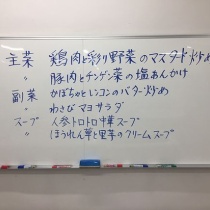 主菜 鶏肉と彩り野菜のマスタード炒め
〃 豚肉とチンゲン菜の塩あんかけ
副菜 かぼちゃとレンコンのバター炒め
〃 わさびマヨサラダ
スープ 人参トロトロ中華スープ
〃 ほうれん草と里芋のクリームスープ